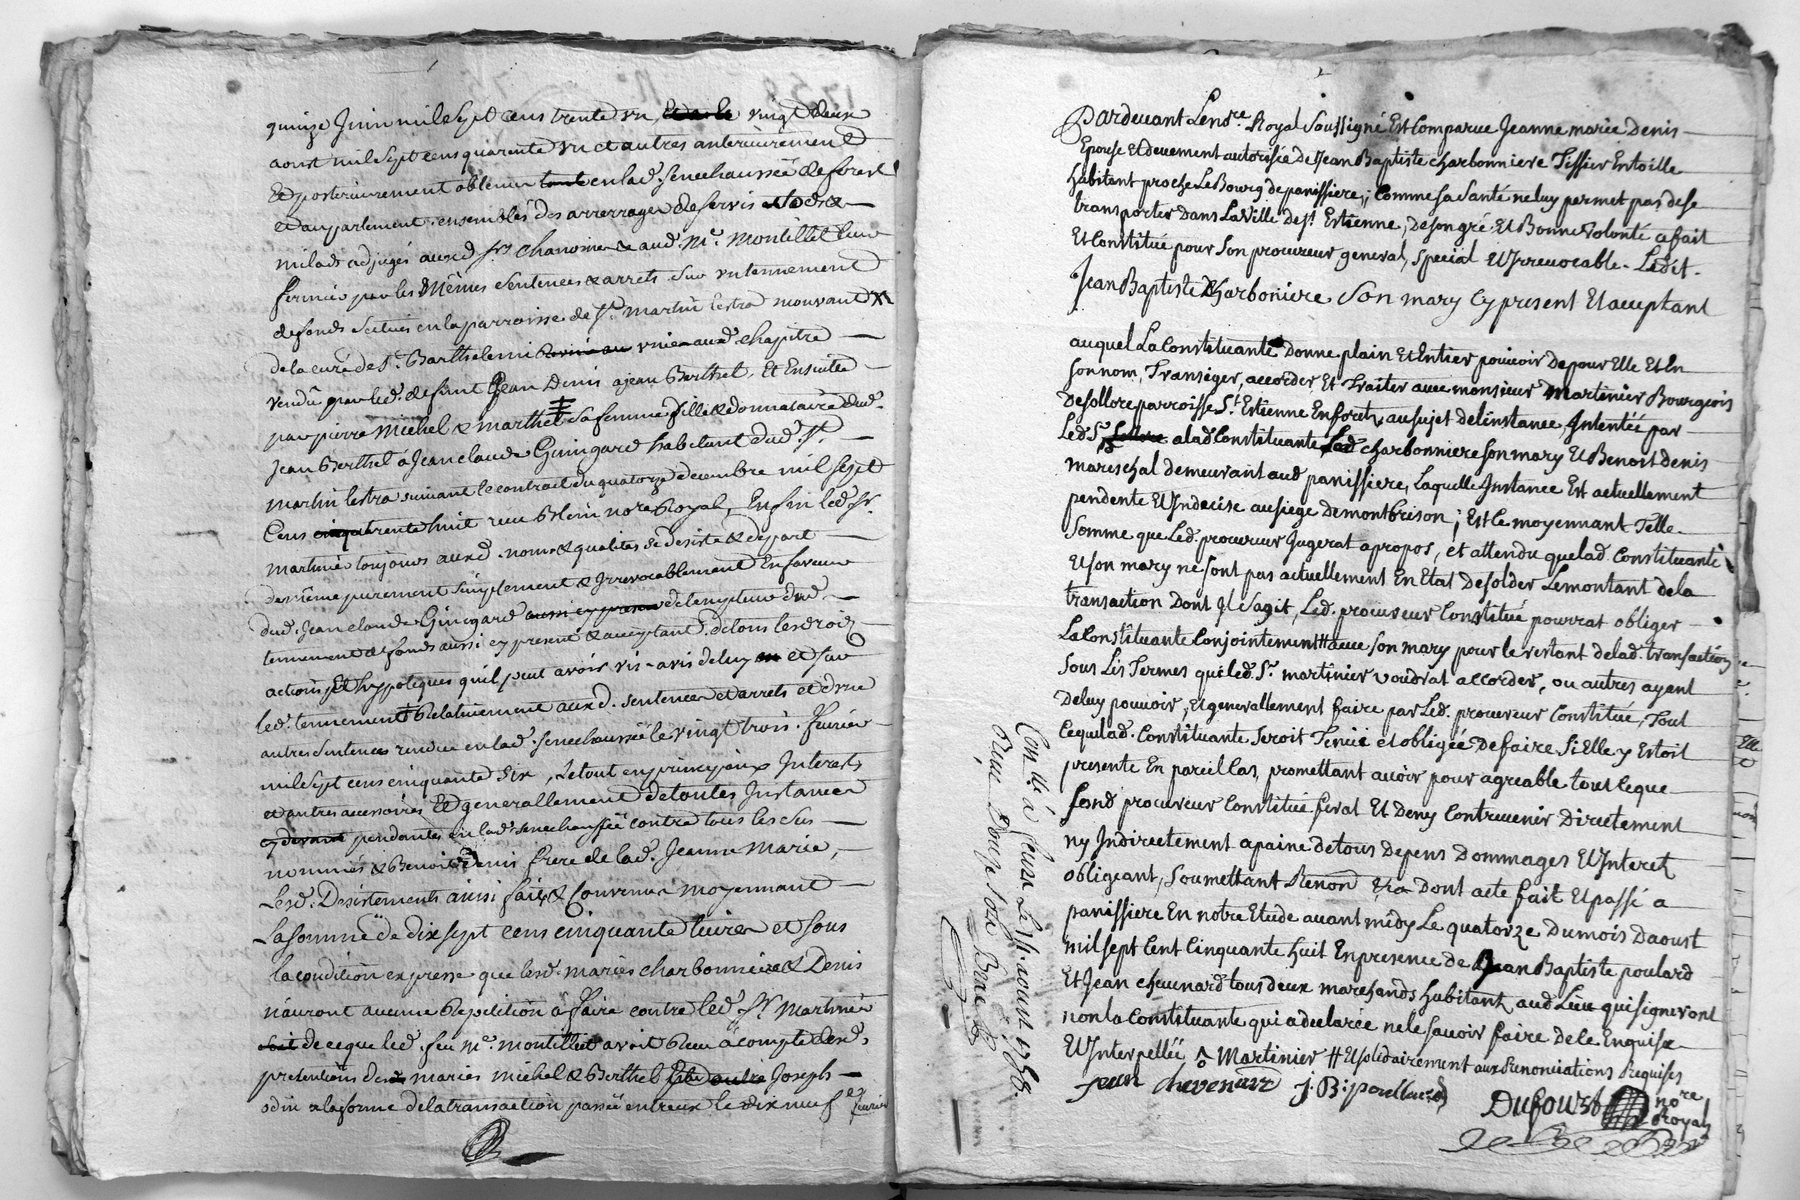 quinze Juin mil sept cens trente un vingt deux
aoust mil sept cens quarente un et autres anterieurement
Et posterieurement obtenues en lad. senechaussée de forest
et au parlement, ensembles des arrerages de servis
milods adjugés auxd. srs chanoines & aud. Me. Montillet leur
fermier par les Mêmes sentences & arrets sur un tennement
de fonds scitués en la parroisse de St. martin lestra mouvant
de la cure de St. Barthelemi unie aud. chapitre
vendu par led. defunt Jean Denis a jean Berthet, Et Ensuitte
par pierre Michel & marthe sa femme fille & donnataire dud.
jean Berthet à Jean claude Guingard habitant dud. St.
martin lestra suivant le contrat du quatorze decembre mil sept
Cens trente huit reçu notre Royal, Enfin led. Sr.
martinier toujours auxd. noms & qualités se desiste & depart
de même purement simplement & Irrevocablement En faveur
dud. Jean claude Guingard acquereur dud.
tennement de fonds aussi cy present & acceptant, de tous les droits
actions Et hypoteques qu'il peut avoir vis-avis de luy et sur
led. tennement Relativement auxd. sentences et arrets et d'une
autre sentence rendue en lad. senechaussée le vingt trois fevrier
mil sept cens cinquante six, Le tout en principaux Interets
et autres accessoires Et generallement de toutes Instances
pendantes en lad. senechaussée contre tous les sus
nommés & Benoit Denis frere de lad. Jeanne Marie,
Lesd. Desistements ainsi faits & Convenus moyennant
La somme de dix sept cens cinquante livres et sous
la condition expresse que lesd. mariés charbonniere & Denis
n'auront aucune Repetition à faire contre led. Sr. Martinier
de ce que led. feu Me. montillet avoit Reçu à compte desd.
pretentions des mariés michel & Berthet Joseph
odin a la forme de la transaction passée entreux le dix neuf fevrier
Pardevant Le nore. Royal Soussigné Est Comparue Jeanne marie Denis
Epouse Et deuement autorisée de Jean Baptiste charbonniere Tissier En toille
habitant proche Le Bourg de panissiere, Comme sa santé ne luy permet pas de se
transporter Dans La Ville de St. Estienne, De son gré Et Bonne volonté a fait
Et Constitué pour son procureur general, special Et Irrevocable Ledit
Jean Baptiste Charboniere Son mary cy present Et acceptant
auquel La Constituante Donne plain Et Entier pouvoir De pour Elle Et En
son nom, Transiger, accorder Et Traiter avec monsieur Martinier Bourgeois
De sollore parroisse St. Estienne En forets, au sujet de l'instance Intentée par
Led. Sr. a lad Constituante charbonniere son mary Et Benoist Denis
mareschal demeurant aud panissiere, Laquelle Instance Est actuellement
pendente Et Indecise au siege de montbrison; Et Ce moyennant Telle
somme que Led. procureur Jugerat apropos, et attendu que lad. Constituante
Et son mary ne sont pas actuellement En Etat De solder Le montant de la
transaction Dont Il s'agit, Led. procureur Constitué pourrat obliger
La Constituante Conjointement # avec son mary pour le restant de lad. transaction
sous Les Termes que led. Sr. martinier voudrat accorder, ou autres ayant
De luy pouvoir, Et generallement faire par Led. procureur Constitué, Tout
Ce que lad. Constituante seroit Tenüe et obligée De faire si Elle y Estoit
presente En pareil Cas, promettant avoir pour agreable tout ce que
sond procureur Constitué ferat Et De n'y Contrevenir Directement
ny Indirectement a paine de tous Depens Dommages Et Interets
obligeant, Soumettant Renond &a Dont acte fait Et passé a
panissiere En notre Etude avant midy Le quatorze Du mois D'aoust
mil sept Cent Cinquante huit En presence de Jean Baptiste poulard
Et Jean chevenard tous deux marchands habitants aud Lieu qui signeront
non la Constituante qui a declarée ne le savoir faire de ce Enquise
Et Interpellée Martinier # Et solidairement aux Renonciations Requises
jean chevenard J. B: poullard
Dufour nore Royal
Con.llé à feurs Le 18. aoust 1758.
reçu Douze sols